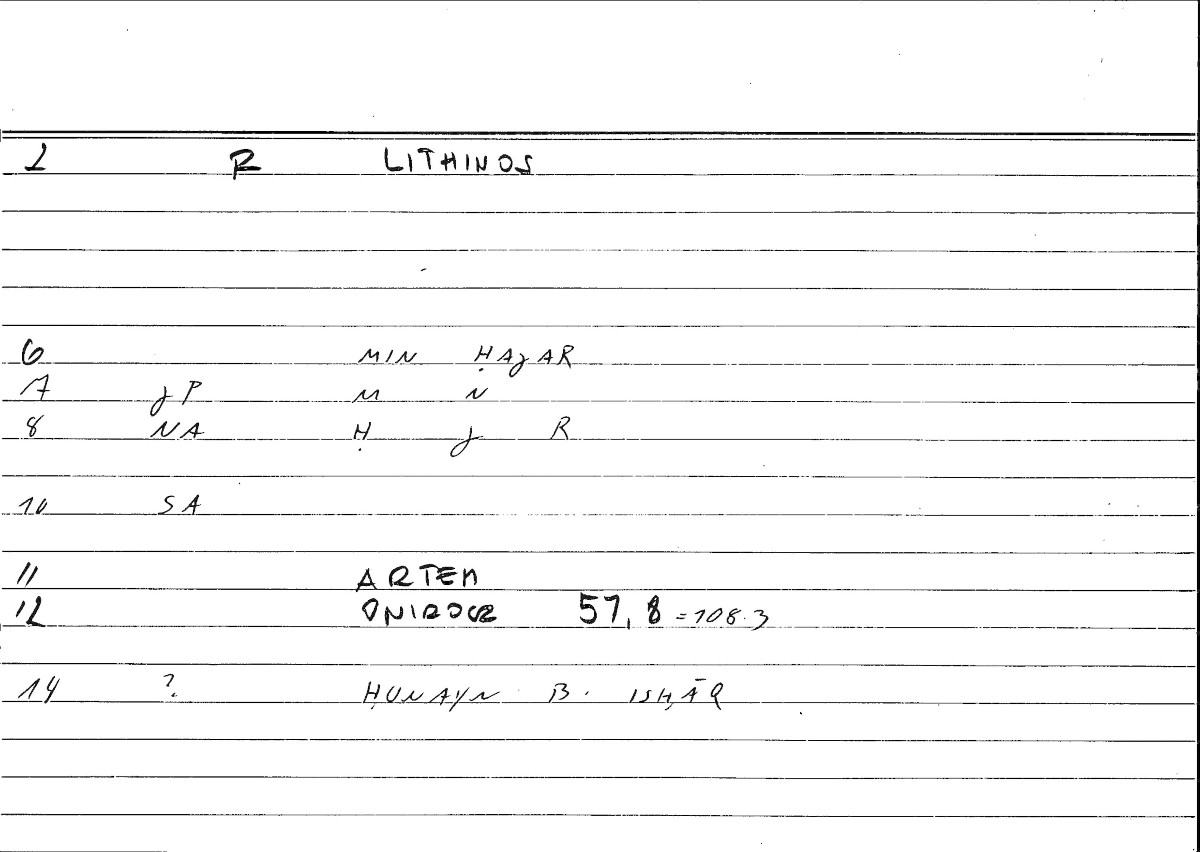 1 R LITHINOS
6 MIN ḤAJAR
7 JP M N
8 NA Ḥ J R
10 SA
11 ARTEM
12 ONIROCR 57,8 =108.3
14 ? ḤUNAYN B. ISḤĀQ